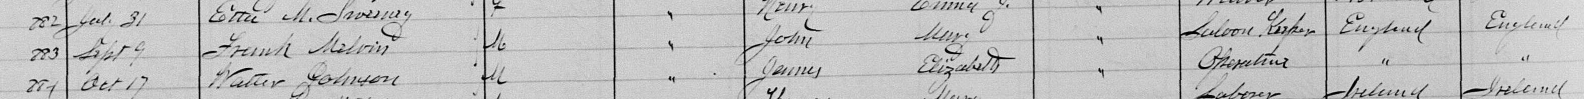 282 Jul. 31 Etta M. Sweeney F " Henry Emma J. "
283 Sept 9 Frank Melvin M " John Mary " Saloon Keeper England England
284 Oct 17 Walter Johnson M " James Elizabeth " Operative " "
Mary Laborer Ireland Ireland